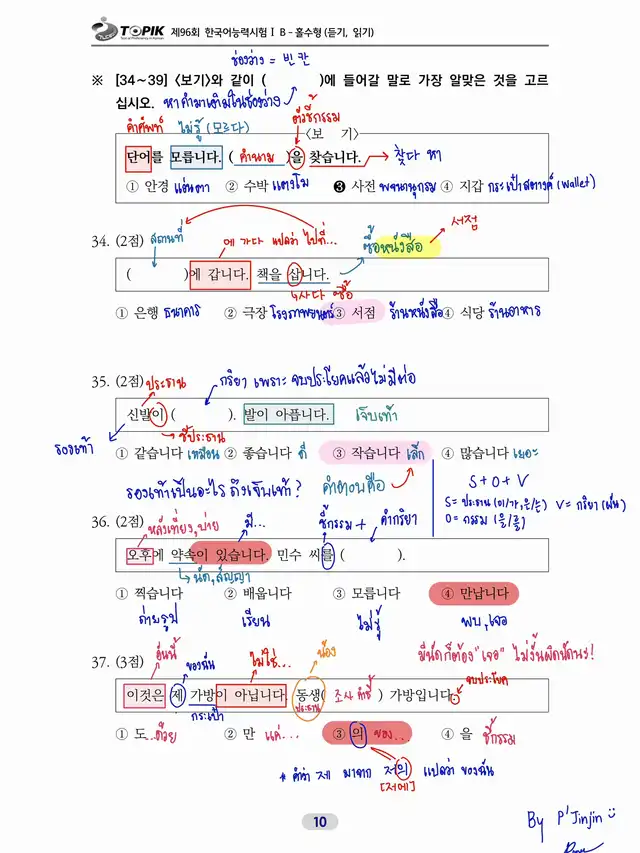 TOPIK 제96회 한국어능력시험 I B - 홀수형 (듣기, 읽기)
ช่องว่าง = 빈 칸
※ [34~39] <보기>와 같이 ( )에 들어갈 말로 가장 알맞은 것을 고르
십시오. หาคำมาเติมในช่องว่าง
คำศัพท์ ไม่รู้ (모르다) ตัวชี้กรรม
<보 기>
단어를 모릅니다. ( คำนาม )을 찾습니다. 찾다 หา
① 안경 แว่นตา ② 수박 แตงโม ❸ 사전 พจนานุกรม ④ 지갑 กระเป๋าสตางค์ (wallet)
서점
34. (2점) สถานที่ 에 가다 แปลว่า ไปที่... ซื้อหนังสือ
( )에 갑니다. 책을 삽니다.
사다 ซื้อ
① 은행 ธนาคาร ② 극장 โรงภาพยนตร์ ③ 서점 ร้านหนังสือ ④ 식당 ร้านอาหาร
35. (2점) ประธาน กริยา เพราะ จบประโยคแล้วไม่มีต่อ
신발이 ( ). 발이 아픕니다. เจ็บเท้า
รองเท้า ชี้ประธาน
① 같습니다 เหมือน ② 좋습니다 ดี ③ 작습니다 เล็ก ④ 많습니다 เยอะ
รองเท้าเป็นอะไร ถึงเจ็บเท้า? คำตอบคือ
S + O + V
S = ประธาน (이/가, 은/는) V = กริยา
O = กรรม (을/를)
36. (2점) หลังเที่ยง, บ่าย มี... ชี้กรรม + คำกริยา
오후에 약속이 있습니다. 민수 씨를 ( ).
นัด, สัญญา
① 찍습니다 ② 배웁니다 ③ 모릅니다 ④ 만납니다
ถ่ายรูป เรียน ไม่รู้ พบ, เจอ
37. (3점) อันนี้ ของฉัน ไม่ใช่... น้อง มีนัดก็ต้อง "เจอ" ไม่งั้นผิดนัดนะ!
이것은 제 가방이 아닙니다. 동생( 조사 คำชี้ ) 가방입니다. จบประโยค
กระเป๋า ประธาน
① 도 ..ด้วย ② 만 แค่... ③ 의 ของ... ④ 을 ชี้กรรม
* คำว่า 제 มาจาก 저의 แปลว่า ของฉัน
[저에]
10
By P'Jinjin